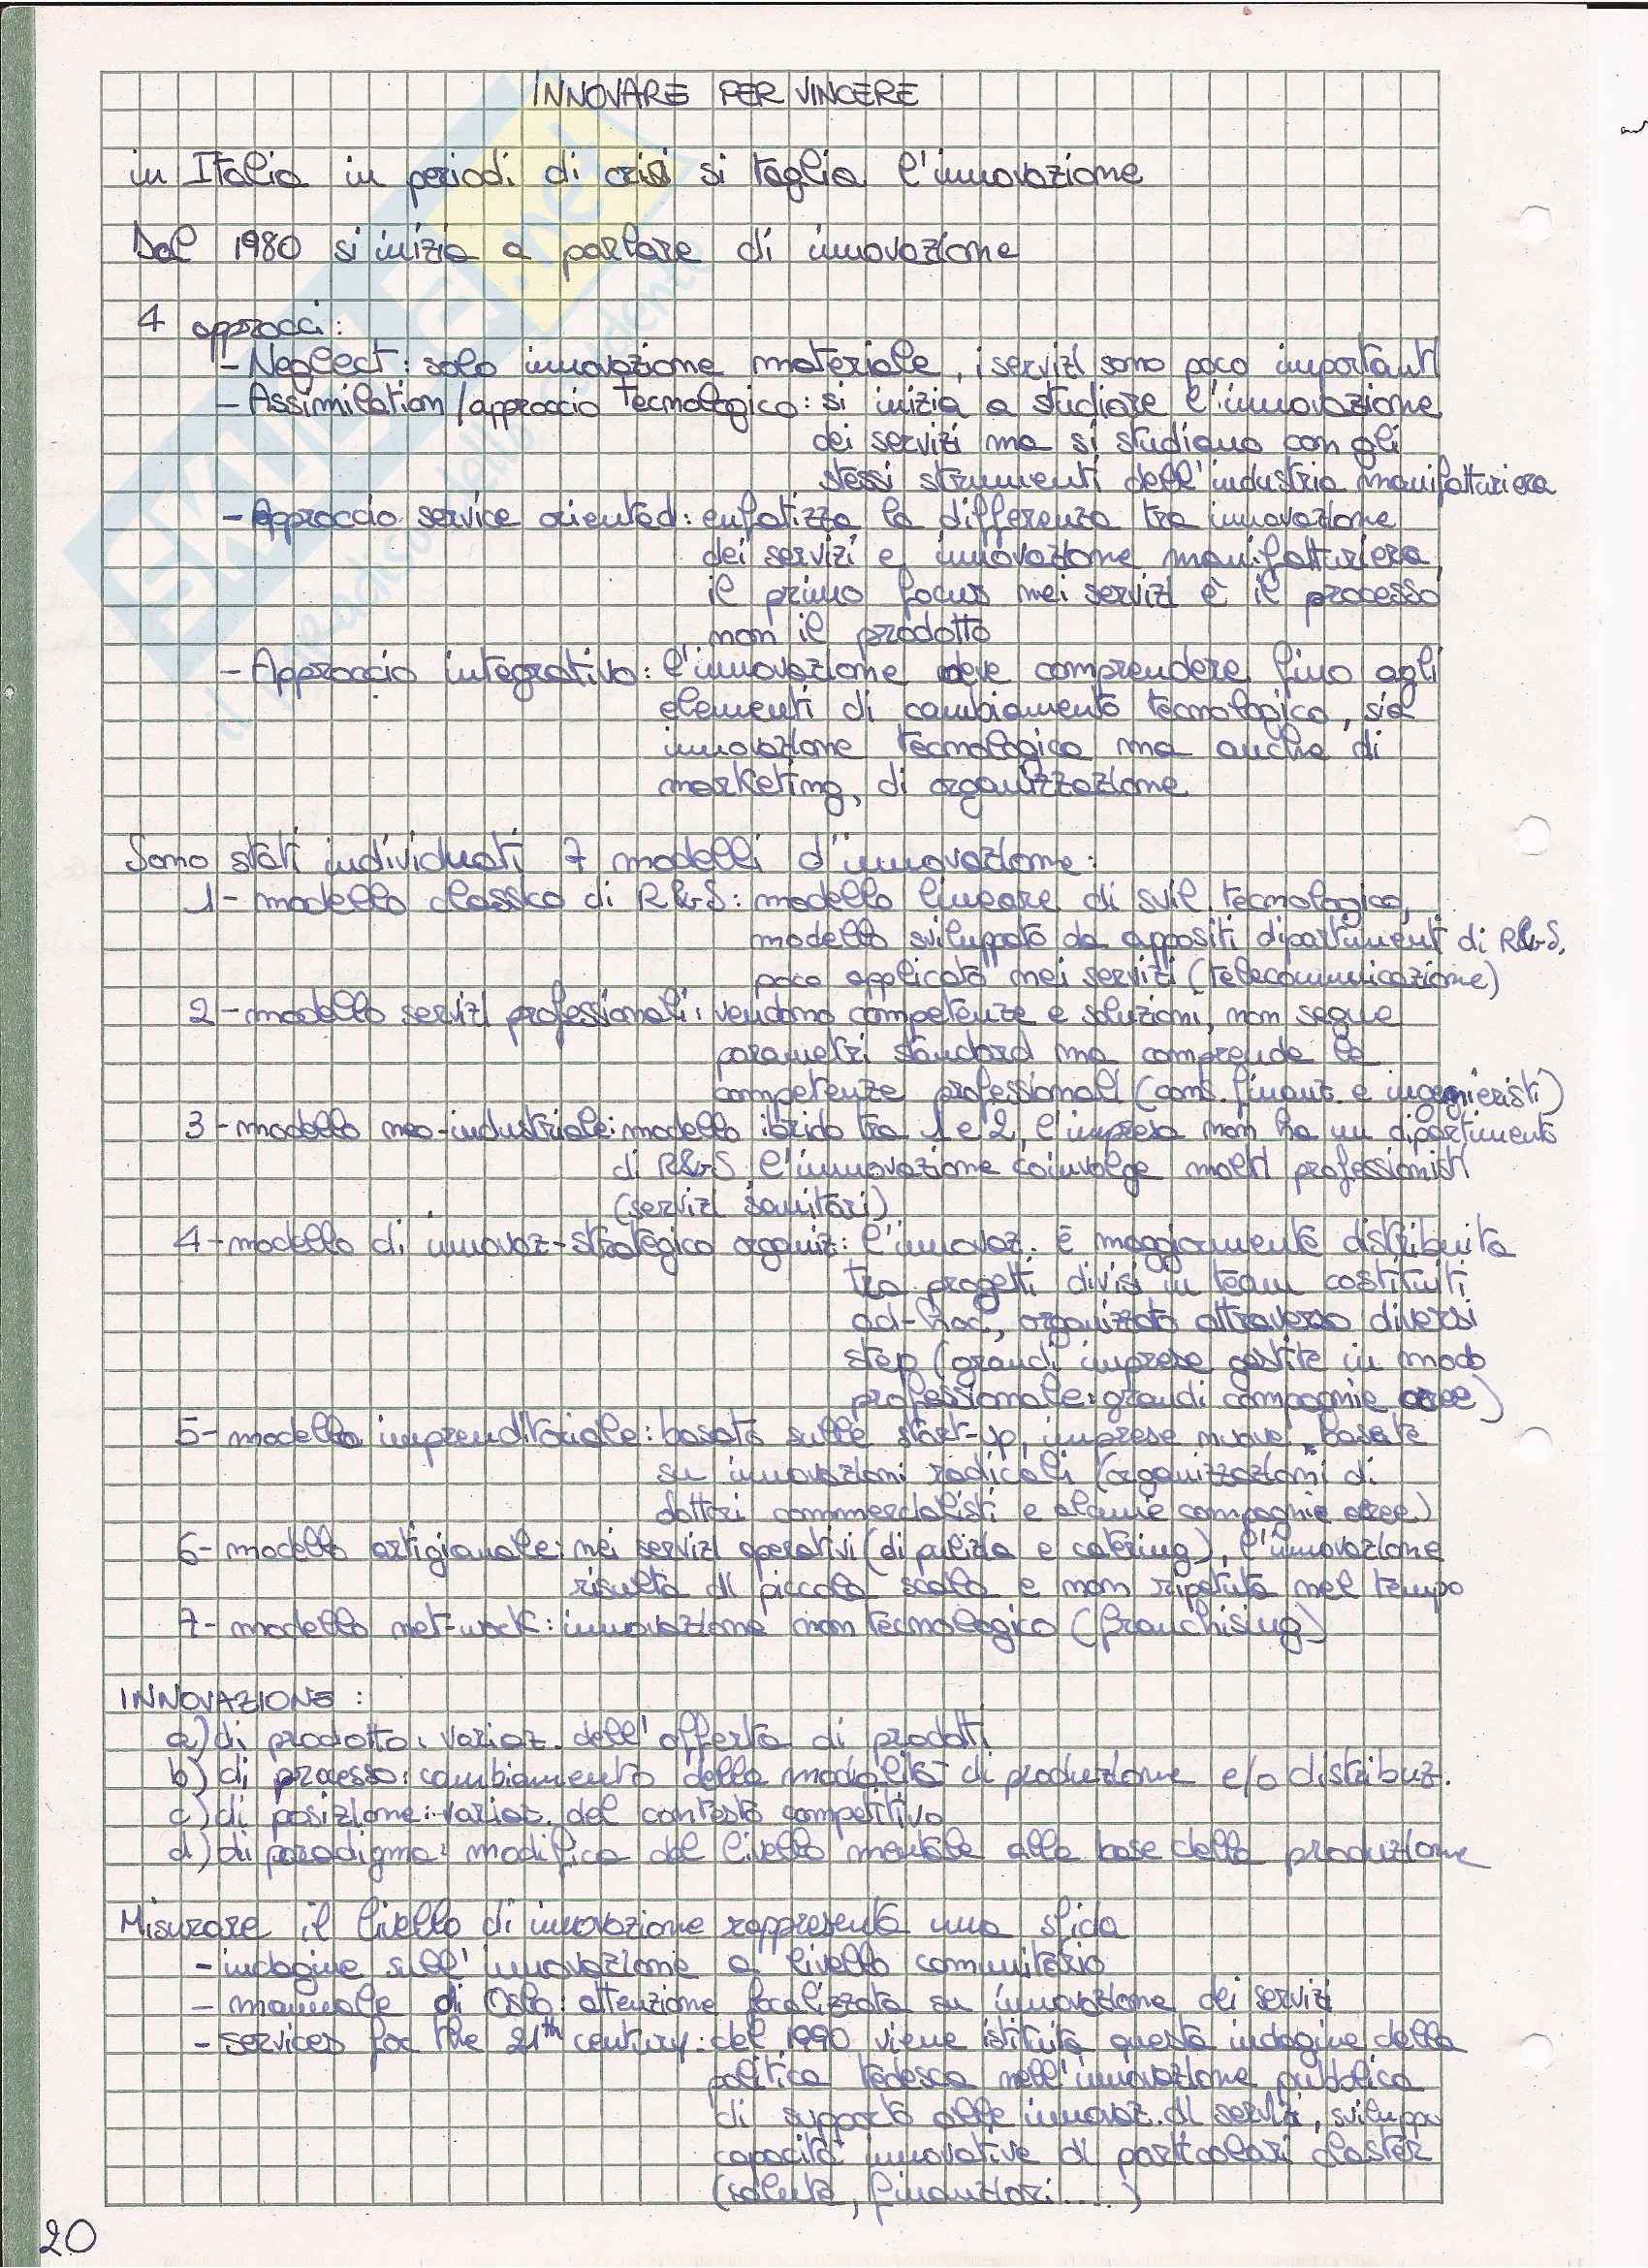 INNOVARE PER VINCERE
in Italia in periodi di crisi si taglia l'innovazione
Dal 1980 si inizia a parlare di innovazione
4 approcci:
- Neglect: solo innovazione materiale, i servizi sono poco importanti
- Assimilation/approccio tecnologico: si inizia a studiare l'innovazione
dei servizi ma si studiano con gli
stessi strumenti dell'industria manifatturiera
- Approccio service oriented: enfatizza la differenza tra innovazione
dei servizi e innovazione manifatturiera,
il primo focus nei servizi è il processo
non il prodotto
- Approccio integrativo: l'innovazione deve comprendere fino agli
elementi di cambiamento tecnologico, sia
innovazione tecnologica ma anche di
marketing, di organizzazione
Sono stati individuati 7 modelli d'innovazione:
1- modello classico di R&S: modello lineare di svil. tecnologico,
modello sviluppato da appositi dipartimenti di R&S,
poco applicato nei servizi (telecomunicazione)
2- modello servizi professionali: vendono competenze e soluzioni, non segue
parametri standard ma comprende le
competenze professionali (cons. finanz. e ingegnieristi)
3- modello neo-industriale: modello ibrido tra 1 e 2, l'impresa non ha un dipartimento
di R&S, l'innovazione coinvolge molti professionisti
(servizi sanitari)
4- modello di innovaz-strategico organiz: l'innovaz. è maggiormente distribuita
tra progetti divisi in team costituiti
ad-hoc, organizzata attraverso diversi
step (grandi imprese gestite in modo
professionale: grandi compagnie aeree)
5- modello imprenditoriale: basato sulle start-up, imprese nuove basate
su innovazioni radicali (organizzazioni di
dottori commercialisti e alcune compagnie aeree)
6- modello artigianale: nei servizi operativi (di pulizia e catering), l'innovazione
risulta di piccola scala e non ripetuta nel tempo
7- modello net-work: innovazione non tecnologica (franchising)
INNOVAZIONE:
a) di prodotto: variaz. dell'offerta di prodotti
b) di processo: cambiamento della modalità di produzione e/o distribuz.
c) di posizione: variaz. del contesto competitivo
d) di paradigma: modifica del livello mentale alla base della produzione
Misurare il livello di innovazione rappresenta una sfida
- indagine sull'innovazione a livello comunitario
- manuale di Oslo: attenzione focalizzata su innovazione dei servizi
- services for the 21th century: del 1990 viene istituita questa indagine della
politica tedesca nell'innovazione pubblica
di supporto alle innovaz. di servizi, sviluppa
capacità innovative di particolari claster
(salute, finanziari.....)
20
SKUOLA.net
il paradiso dello studente